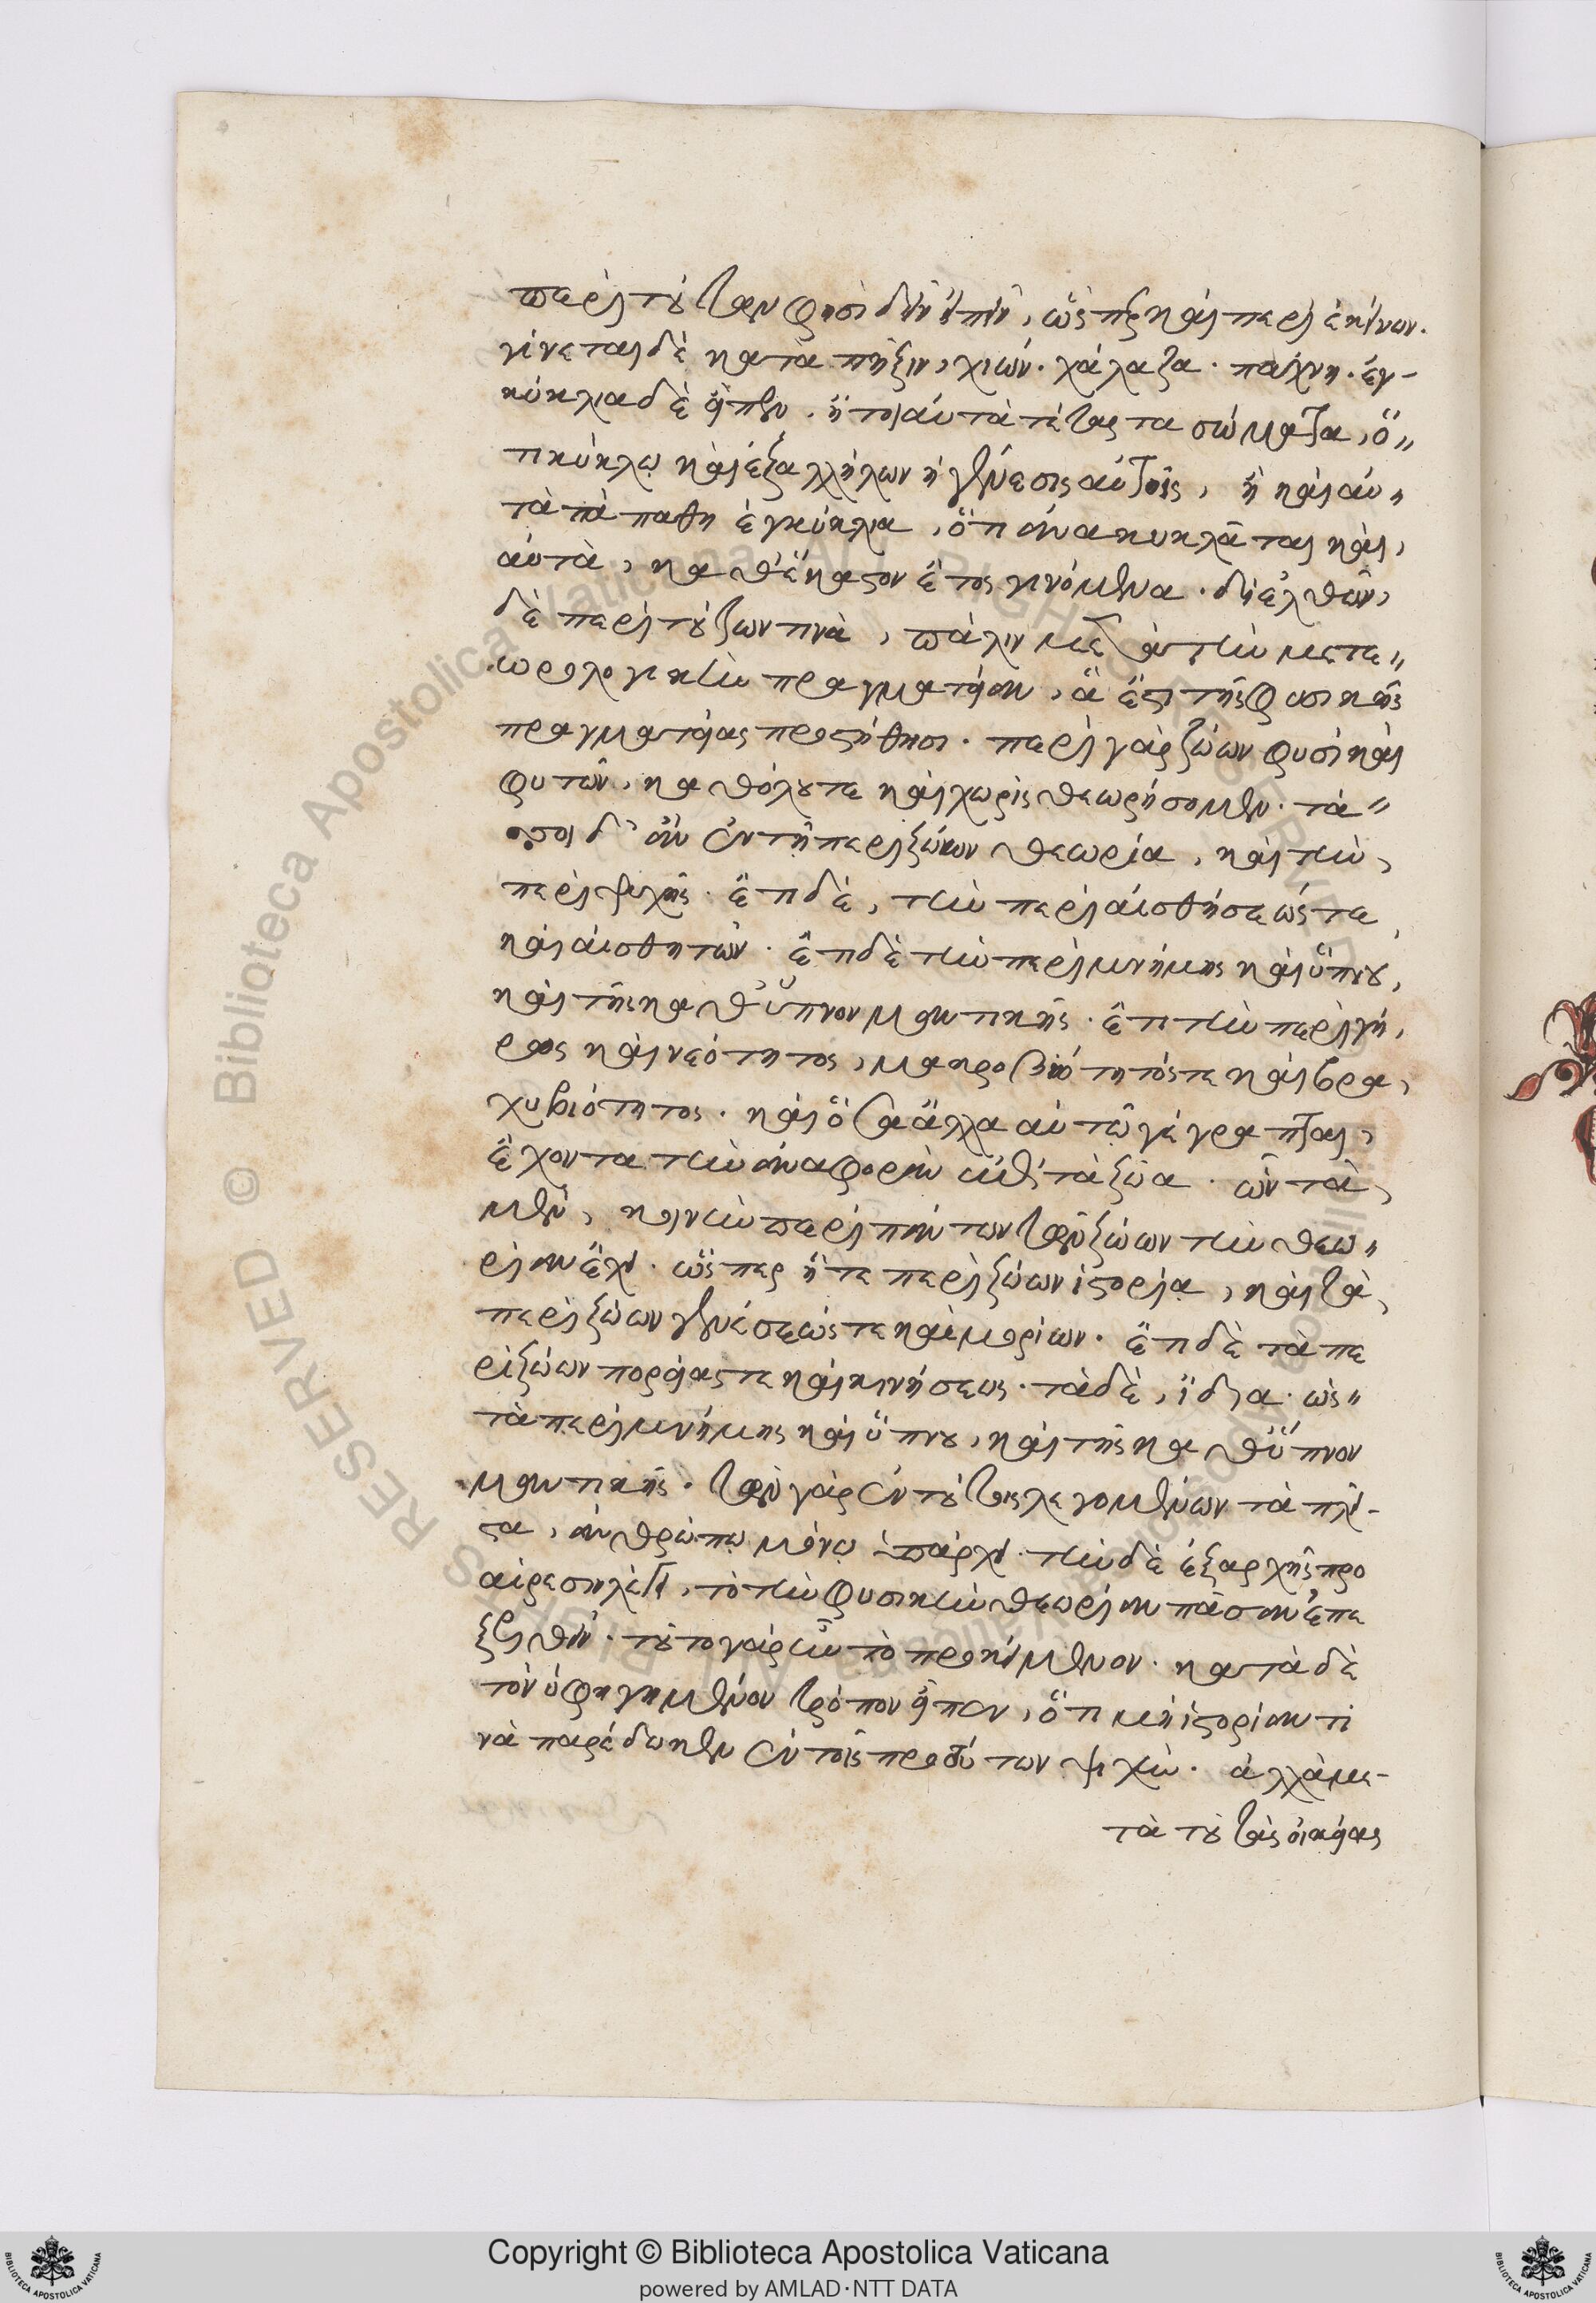 περὶ τούτων φησὶ δεῖν εἰπεῖν, ὥσπερ καὶ περὶ ἐκείνων.
γίνεται δὲ κατὰ πῆξιν, χιών· χάλαζα· πάχνη· ἐγ-
κύκλια δὲ εἶπεν· ἢ τοιαῦτα τὰ σώματα, ὅ-
τι κύκλῳ καὶ ἐξ ἀλλήλων ἡ γένεσις αὐτοῖς, ἢ καὶ αὐ-
τὰ τὰ πάθη ἐγκύκλια, ὅτι ἀνακυκλᾶται καὶ
αὐτὰ, καθ' ἕκαστον ἔτος γινόμενα. διελθὼν
δὲ περὶ τούτων τινὰ, πάλιν μετὰ τὴν μετε-
ωρολογικὴν πραγματείαν, ἃ ἔστι τῆς φυσικῆς
πραγματείας προστίθησι. περὶ γὰρ ζώων φυσὶ καὶ
φυτῶν, καθόλου τε καὶ χωρὶς θεωρήσομεν. τά-
σσοι δ' ἂν ἐν τῇ περὶ ζώων θεωρία, καὶ τὴν
περὶ ψυχῆς. ἔτι δὲ, τὴν περὶ αἰσθήσεώς τε
καὶ αἰσθητῶν. ἔτι δὲ τὴν περὶ μνήμης καὶ ὕπνου,
καὶ τῆς καθ' ὕπνον μαντικῆς. ἔτι τὴν περὶ γή-
ρως καὶ νεότητος, μακροβιότητός τε καὶ βρα-
χυβιότητος. καὶ ὅσα ἄλλα αὐτῷ γέγραπται,
ἔχοντα τὴν ἀναφορὰν εἰς τὰ ζῶα. ὧν τὰ
μὲν, κοινὴν περὶ πάντων τῶν ζώων τὴν θεω-
ρίαν ἔχει. ὥσπερ ἥ τε περὶ ζώων ἱστορία, καὶ τὰ
περὶ ζώων γενέσεώς τε καὶ μορίων. ἔτι δὲ τὰ πε
ρὶ ζώων πορείας τε καὶ κινήσεως. τὰ δὲ, ἴδια. ὡς
τὰ περὶ μνήμης καὶ ὕπνου, καὶ τῆς καθ' ὕπνον
μαντικῆς. τῶν γὰρ ἐν τούτοις λεγομένων τὰ πλεῖ-
στα, ἀνθρώπῳ μόνῳ ὑπάρχει. τὴν δὲ ἐξαρχῆς προ
αίρεσιν λέγει, τὸ τὴν φυσικὴν θεωρίαν πᾶσαν ἐπε
ξελθεῖν. τοῦτο γὰρ ἦν τὸ προκείμενον. κατὰ δὲ
τὸν ὑφηγημένον τρόπον εἶπεν, ὅτι μὴ ἱστορίαν τι
νὰ παρέδωκεν ἐν τοῖς πρὸ τούτων ψιλήν. ἀλλὰ με-
τὰ τοῦ τὰς οἰκείας
Copyright © Biblioteca Apostolica Vaticana
powered by AMLAD·NTT DATA